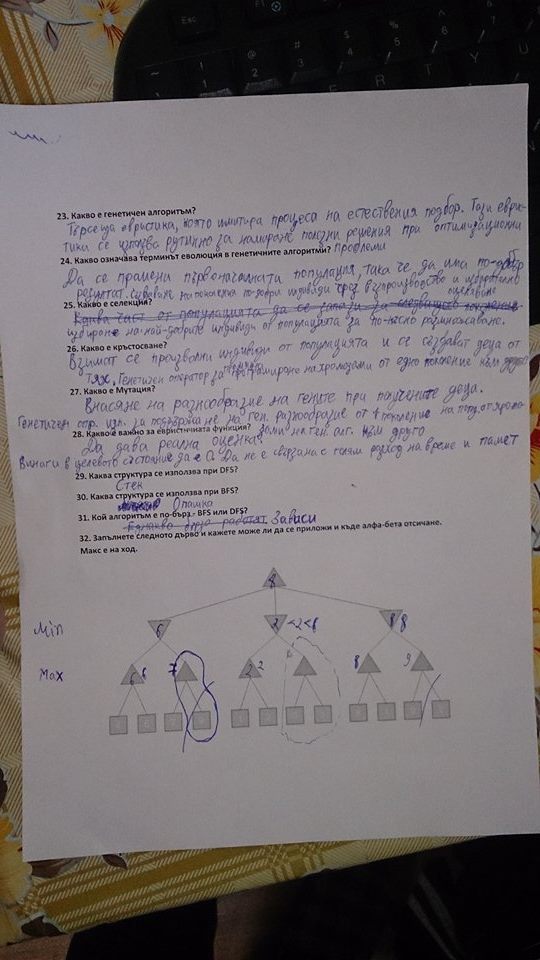 23. Какво е генетичен алгоритъм?
Търсеща евристика, която имитира процеса на естествения подбор. Тази еврис-
тика се използва рутинно за намиране полезни решения при оптимизационни
24. Какво означава терминът еволюция в генетичните алгоритми? проблеми
Да се промени първоначалната популация, така че да има по-добър
резултат. Създаване на поколения по-добри индивиди чрез възпроизводство и
25. Какво е селекция? оцеляване
Каква част от популацията да се запази за следващото поколение
избиране на най-добрите индивиди от популацията за по-късно размножаване.
26. Какво е кръстосване?
Взимат се произволни индивиди от популацията и се създават деца от
тях. Генетичен оператор за програмиране на хромозоми от едно поколение към друго
27. Какво е Мутация?
Внасяне на разнообразие на гените при получените деца.
Генетичен опр. изп. за поддържане на ген. разнообразие от 1 поколение на попул. от хромо-
28. Какво е важно за евристичната функция? зоми на ген. алг. към друго
Да дава реална оценка.
Винаги в целевото състояние да е 0. Да не е свързана с голям разход на време и памет
29. Каква структура се използва при DFS?
Стек
30. Каква структура се използва при BFS?
Опашка
31. Кой алгоритъм е по-бърз - BFS или DFS?
Еднакво бързо работят Зависи
32. Запълнете следното дърво и кажете може ли да се приложи и къде алфа-бета отсичане.
Макс е на ход.
8
Min 6 2 <2<6 8 8
Max 6 6 7 2 2 8 9